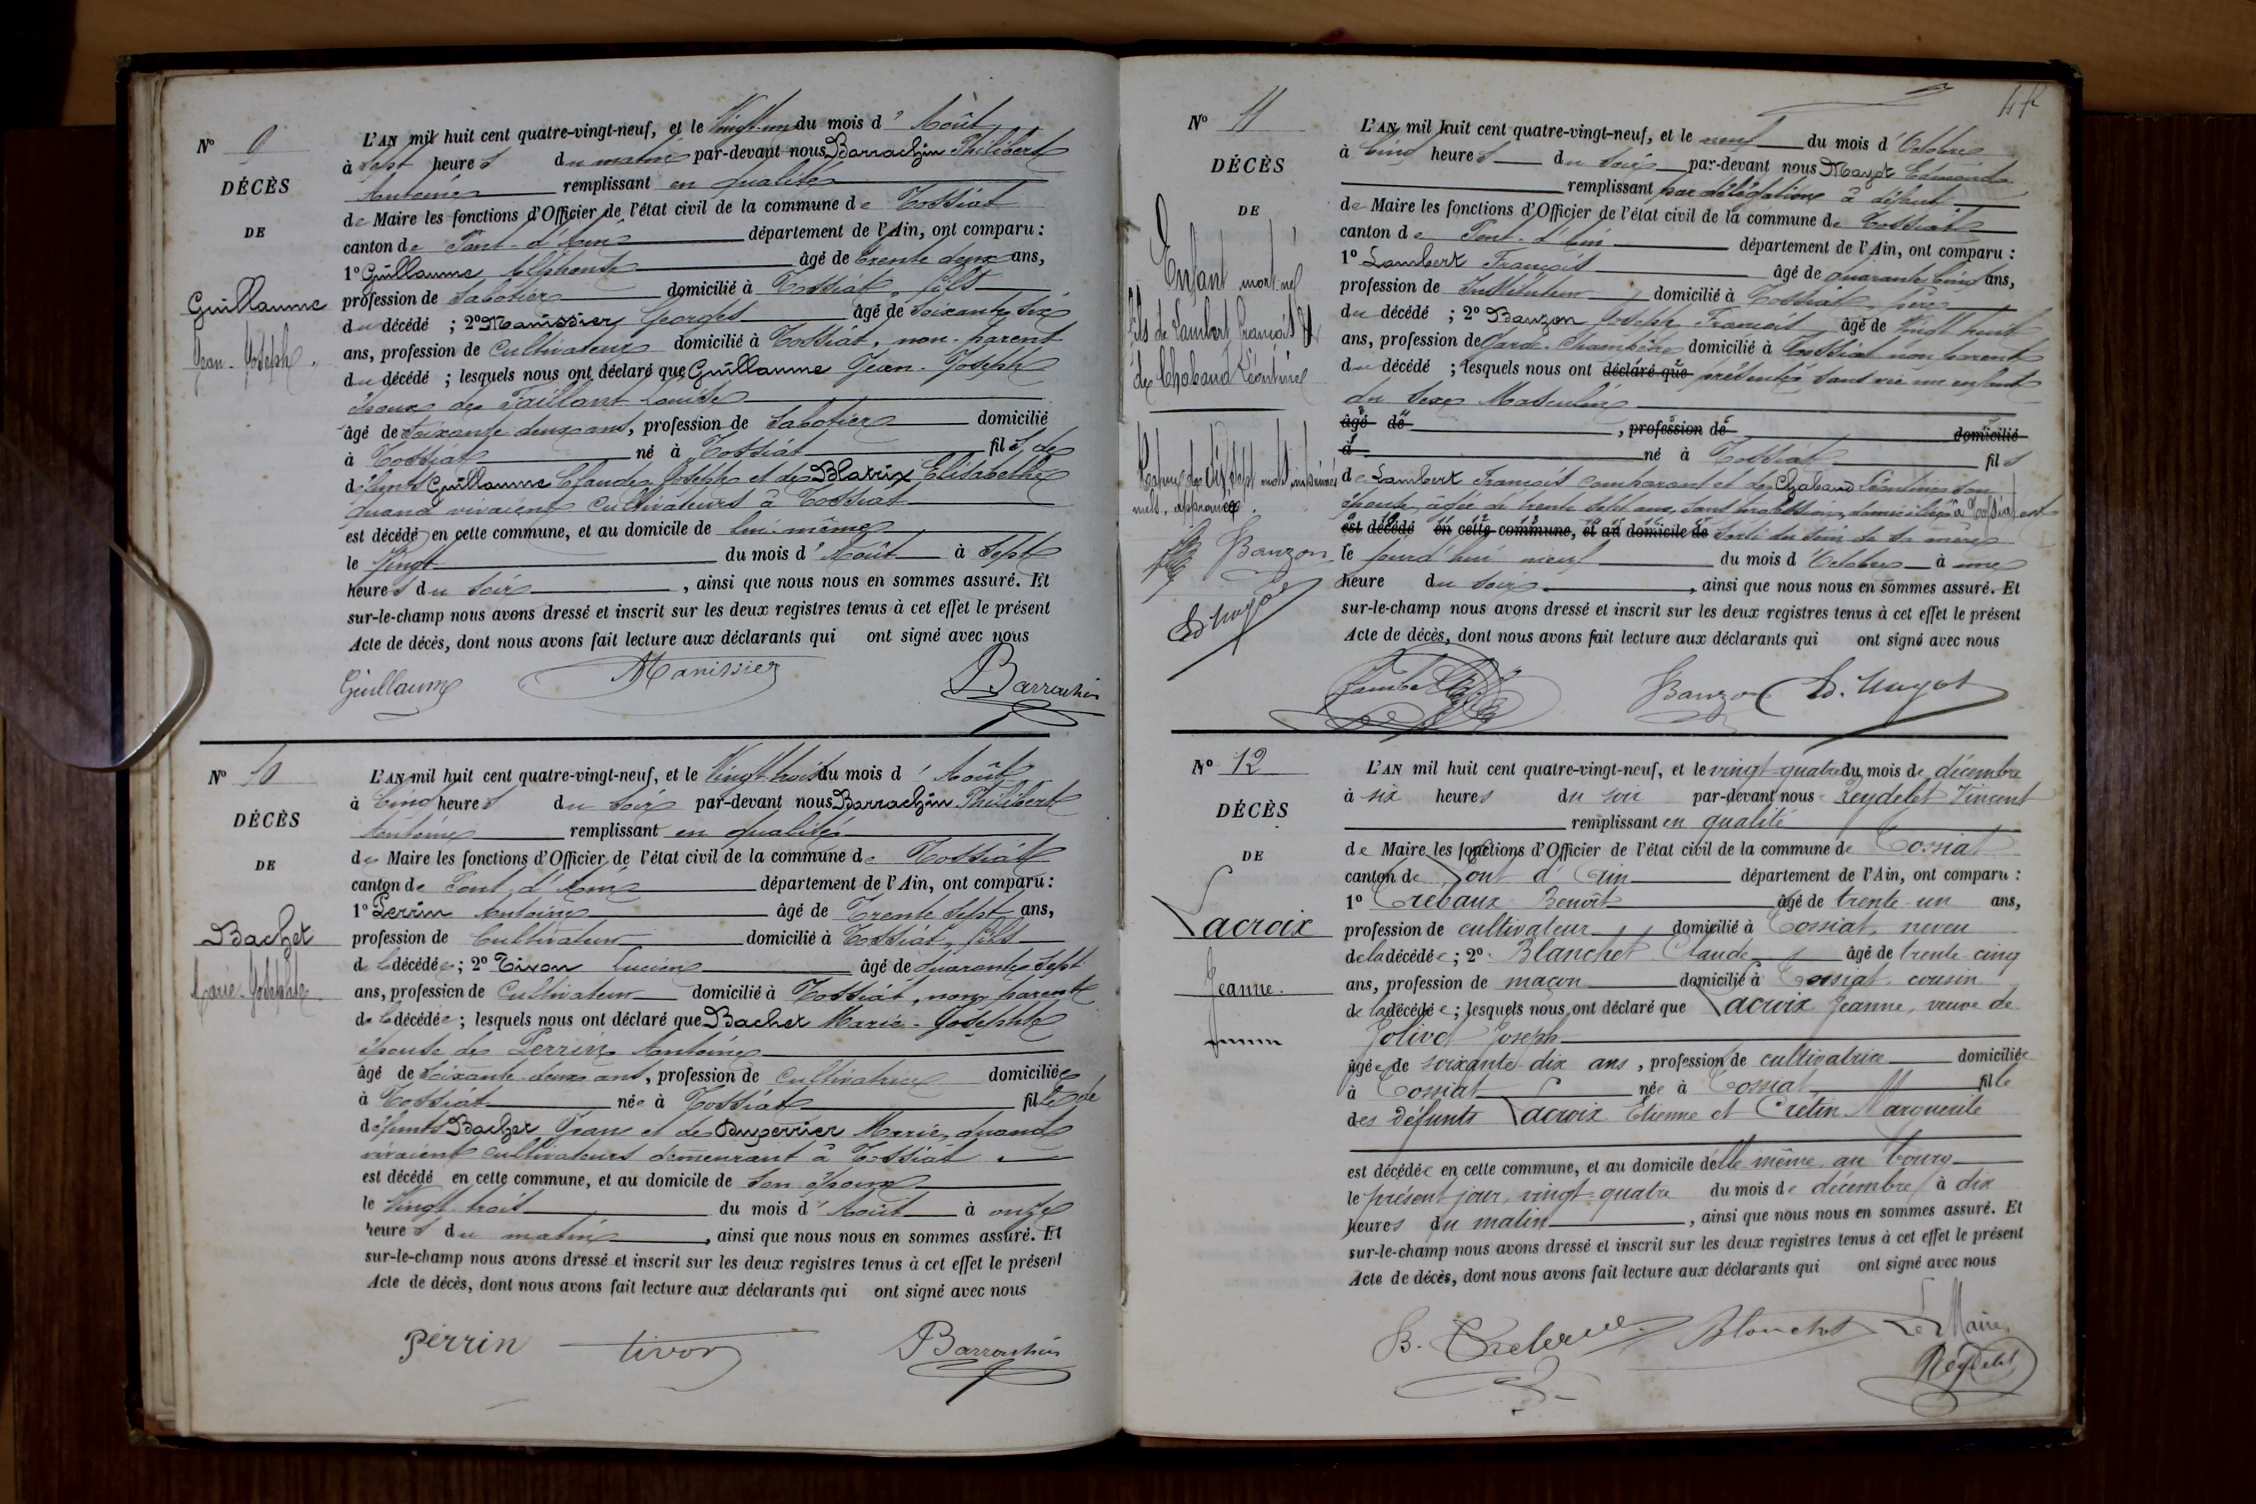 N° 9
DÉCÈS
DE
Guillaume
Jean-Joseph.
L'AN mil huit cent quatre-vingt-neuf, et le Vingt-un du mois d'Août
à sept heures du matin par-devant nous Barrachin Philibert
Antoine remplissant en qualité
de Maire les fonctions d'Officier de l'état civil de la commune de Tossiat
canton de Pont-d'Ain département de l'Ain, ont comparu :
1° Guillaume Alphonse âgé de trente deux ans,
profession de Sabotier domicilié à Tossiat, fils
du décédé ; 2° Manissier Georges âgé de soixante six
ans, profession de Cultivateur domicilié à Tossiat, non-parent
du décédé ; lesquels nous ont déclaré que Guillaume Jean-Joseph
époux de Taillant Louise
âgé de soixante deux ans, profession de Sabotier domicilié
à Tossiat né à Tossiat fils de
défunts Guillaume Claude Joseph et de Blatrix Elisabeth
quand vivaient Cultivateurs à Tossiat
est décédé en cette commune, et au domicile de lui-même
le Vingt du mois d'Août à Sept
heures du soir, ainsi que nous nous en sommes assuré. Et
sur-le-champ nous avons dressé et inscrit sur les deux registres tenus à cet effet le présent
Acte de décès, dont nous avons fait lecture aux déclarants qui ont signé avec nous
Guillaume Manissier Barrachin
N° 10
DÉCÈS
DE
Bachet
Marie-Josephte
L'AN mil huit cent quatre-vingt-neuf, et le Vingt-trois du mois d'Août
à Cinq heures du soir par-devant nous Barrachin Philibert
Antoine remplissant en qualité
de Maire les fonctions d'Officier de l'état civil de la commune de Tossiat
canton de Pont-d'Ain département de l'Ain, ont comparu :
1° Perrin Antoine âgé de Trente sept ans,
profession de Cultivateur domicilié à Tossiat, fils
de la décédée ; 2° Tivon Lucien âgé de quarante sept
ans, profession de Cultivateur domicilié à Tossiat, non parent
de la décédée ; lesquels nous ont déclaré que Bachet Marie-Josephte
épouse de Perrin Antoine
âgé de soixante-deux ans, profession de Cultivatrice domiciliée
à Tossiat née à Tossiat fille de
défunts Bachet Jean et de Duperrier Marie, quand
vivaient cultivateurs demeurant à Tossiat
est décédé en cette commune, et au domicile de son époux
le Vingt trois du mois d'Août à onze
heures du matin, ainsi que nous nous en sommes assuré. Et
sur-le-champ nous avons dressé et inscrit sur les deux registres tenus à cet effet le présent
Acte de décès, dont nous avons fait lecture aux déclarants qui ont signé avec nous
Perrin tivon Barrachin
N° 11
DÉCÈS
DE
Enfant mort-né
fils de Lambert François &
de Chabaud Léontine
L'AN mil huit cent quatre-vingt-neuf, et le neuf du mois d'Octobre
à Cinq heures du soir par-devant nous Mayot Edmond
remplissant par délégation à défaut
de Maire les fonctions d'Officier de l'état civil de la commune de Tossiat
canton de Pont-d'Ain département de l'Ain, ont comparu :
1° Lambert François âgé de quarante cinq ans,
profession de Instituteur domicilié à Tossiat, père
du décédé ; 2° Banzon Joseph François, âgé de Vingt huit
ans, profession de Garde-Champêtre domicilié à Tossiat non parent
du décédé ; lesquels nous ont déclaré que présenté sans vie un enfant
du sexe Masculin
âgé de , profession de domicilié
à né à Tossiat fils
de Lambert François comparant et de Chabaud Léontine son
épouse, âgée de trente sept ans, sans profession, domiciliée à Tossiat est
est décédé en cette commune, et au domicile de sorti du sein de sa mère
le jourd'hui neuf du mois d'Octobre à une
heure du soir, ainsi que nous nous en sommes assuré. Et
sur-le-champ nous avons dressé et inscrit sur les deux registres tenus à cet effet le présent
Acte de décès, dont nous avons fait lecture aux déclarants qui ont signé avec nous
Rature de dix sept mots imprimés
nuls, approuvée.
Banzon
Ed. Mayot
Lambert Banzon Ed. Mayot
N° 12
DÉCÈS
DE
Lacroix
Jeanne.
L'AN mil huit cent quatre-vingt-neuf, et le vingt-quatre du mois de décembre
à six heures du soir par-devant nous Reydelet Vincent
remplissant en qualité
de Maire les fonctions d'Officier de l'état civil de la commune de Tossiat
canton de Pont d'Ain département de l'Ain, ont comparu :
1° Crebaux Benoît âgé de trente-un ans,
profession de cultivateur domicilié à Tossiat, neveu
de la décédée ; 2° Blanchet Claude âgé de trente-cinq
ans, profession de maçon domicilié à Tossiat, cousin
de la décédée ; lesquels nous ont déclaré que Lacroix Jeanne, veuve de
Jolivet Joseph
âgée de soixante-dix ans, profession de cultivatrice domiciliée
à Tossiat née à Tossiat fille
des défunts Lacroix Etienne et Cretin Marguerite
est décédée en cette commune, et au domicile d'elle même, au bourg
le présent jour, vingt-quatre du mois de décembre à dix
heures du matin, ainsi que nous nous en sommes assuré. Et
sur-le-champ nous avons dressé et inscrit sur les deux registres tenus à cet effet le présent
Acte de décès, dont nous avons fait lecture aux déclarants qui ont signé avec nous
B. Crebaux Blanchet Le Maire,
Reydelet